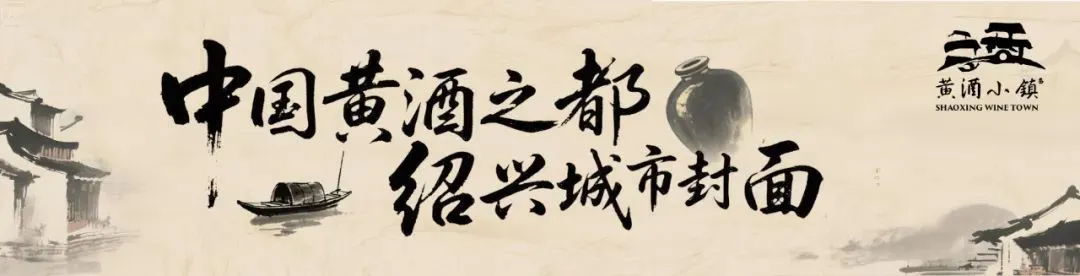 中国黄酒之都
绍兴城市封面
黄酒小镇
SHAOXING WINE TOWN